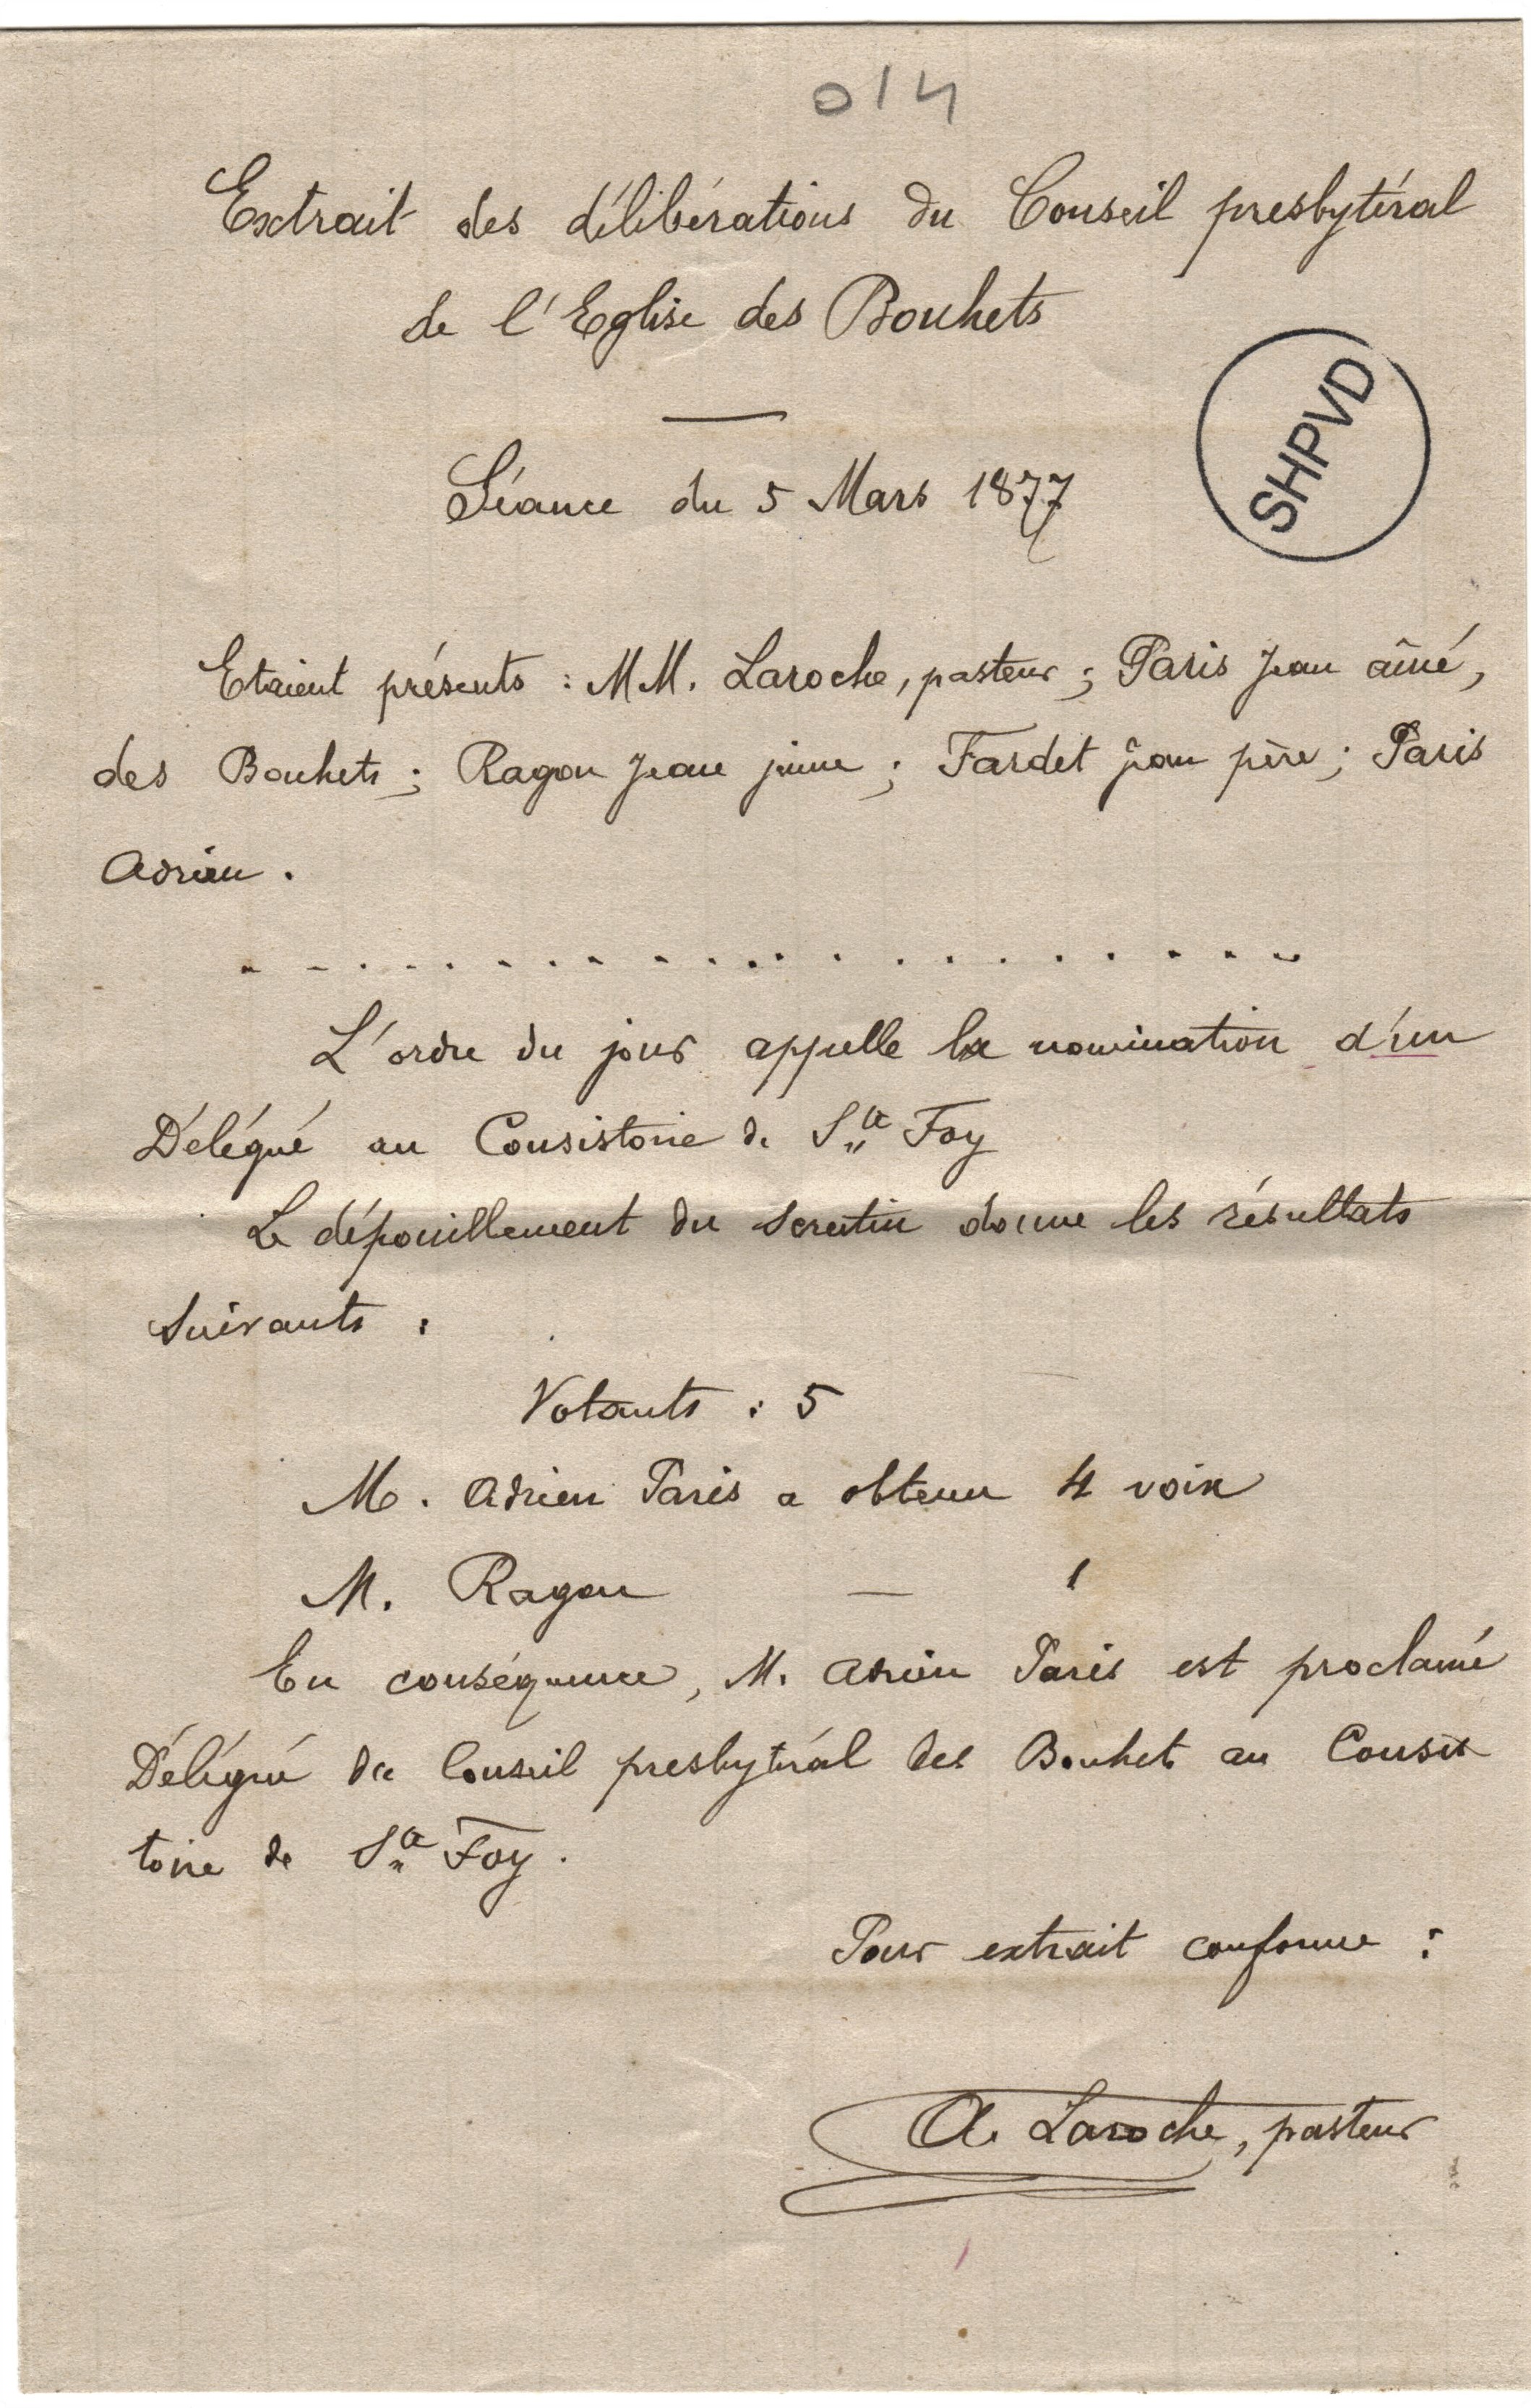 014
Extrait des délibérations du Conseil presbytéral
de l'Eglise des Bouhets
SHPVD
Séance du 5 Mars 1877
Etaient présents : MM. Laroche, pasteur ; Paris Jean aîné,
des Bouhets ; Ragon Jean jeune ; Fardet Jean père ; Paris
Adrien.
. . . . . . . . . . . . . . . . . . . .
L'ordre du jour appelle la nomination d'un
Délégué au Consistoire de Ste Foy
Le dépouillement du scrutin donne les résultats
suivants :
Votants : 5
M. Adrien Paris a obtenu 4 voix
M. Ragon — 1
En conséquence, M. Adrien Paris est proclamé
Délégué du Conseil presbytéral des Bouhets au Consis
toire de Ste Foy.
Pour extrait conforme :
A. Laroche, pasteur